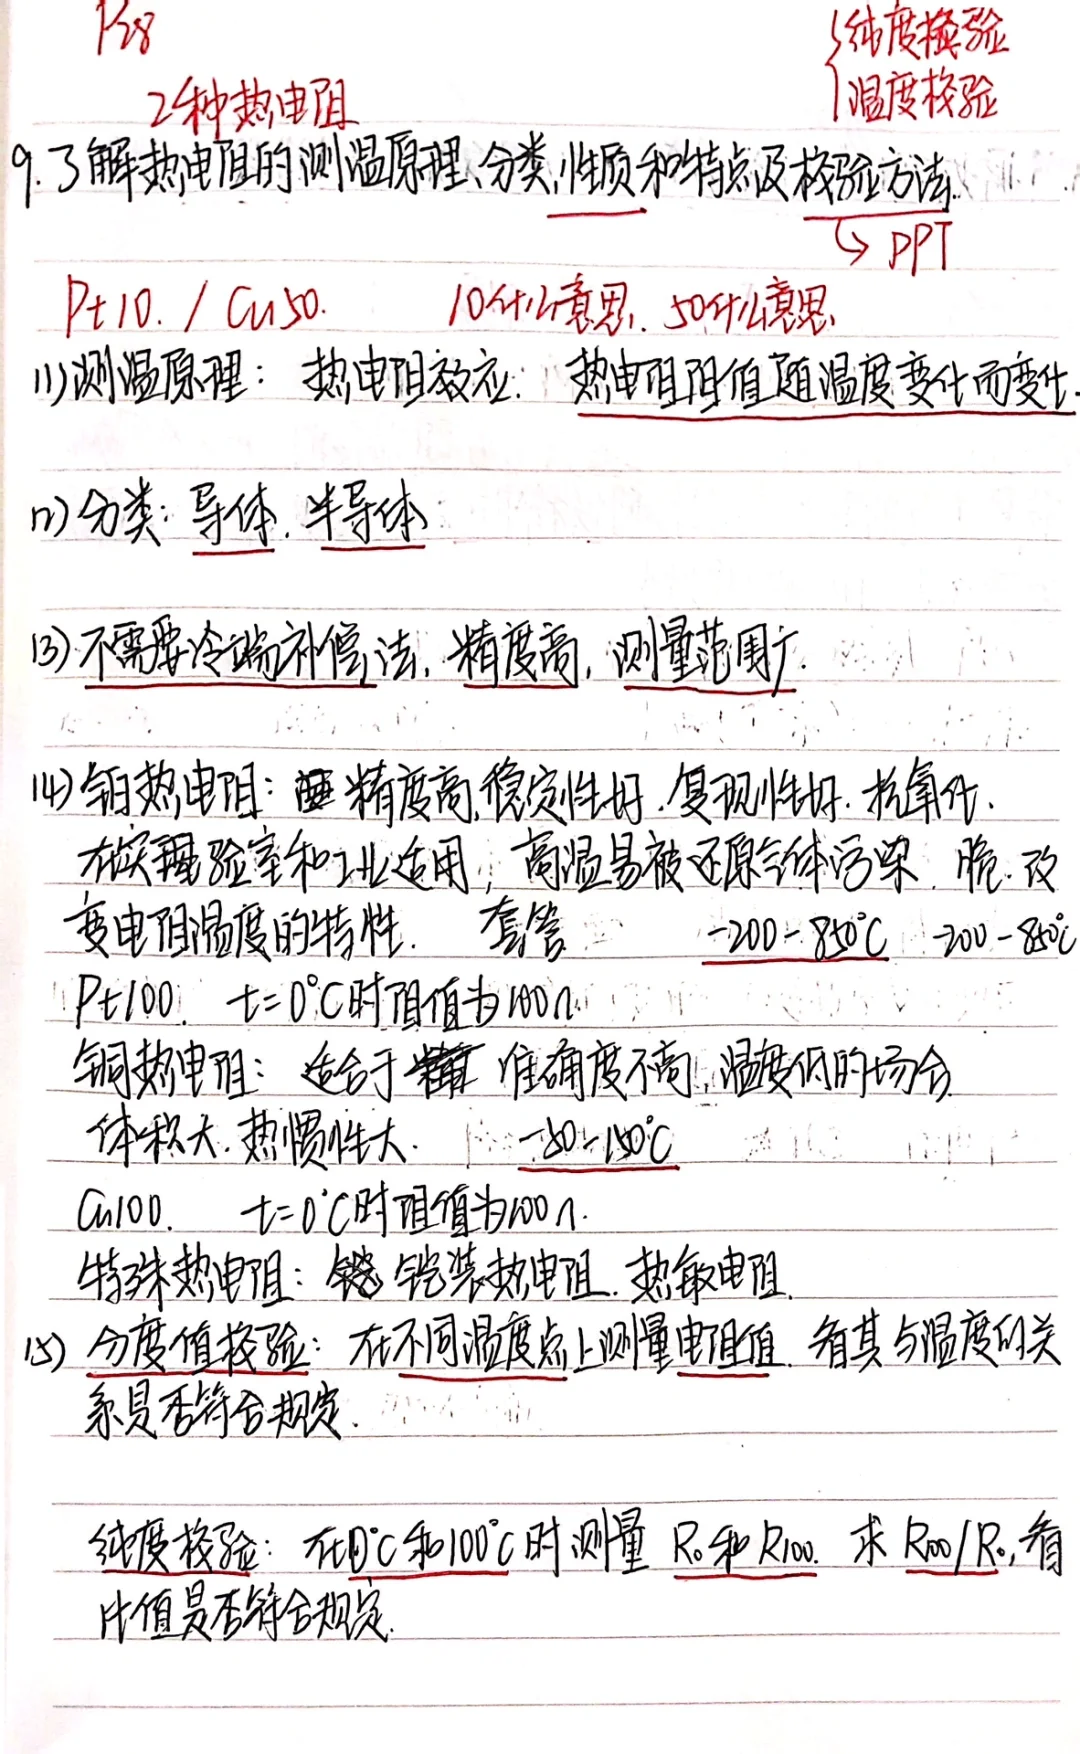 P28
纯度校验
温度校验
2种热电阻
9.了解热电阻的测温原理、分类,性质和特点及校验方法.
↳ PPT
Pt10. / Cu50. 10什么意思. 50什么意思.
(1)测温原理: 热电阻效应: 热电阻阻值随温度变化而变化.
(2)分类: 导体. 半导体
(3)不需要冷端补偿法. 精度高, 测量范围广.
(4)铂热电阻: 精度高,稳定性好.复现性好.抗氧化.
在实验室和工业适用, 高温易被还原气体污染. 脆.改
变电阻温度的特性. 套管 -200-850℃ -200-850℃
Pt100. t=0℃时阻值为100Ω
铜热电阻: 适合于 准确度不高,温度低的场合
体积大.热惯性大. -50-150℃
Cu100. t=0℃时阻值为100Ω.
特殊热电阻: 铠装热电阻.热敏电阻.
(5) 分度值校验: 在不同温度点上测量电阻值.看其与温度的关
系是否符合规定.
纯度校验: 在0℃和100℃时测量 R₀和R₁₀₀. 求 R₁₀₀/R₀,看
比值是否符合规定.